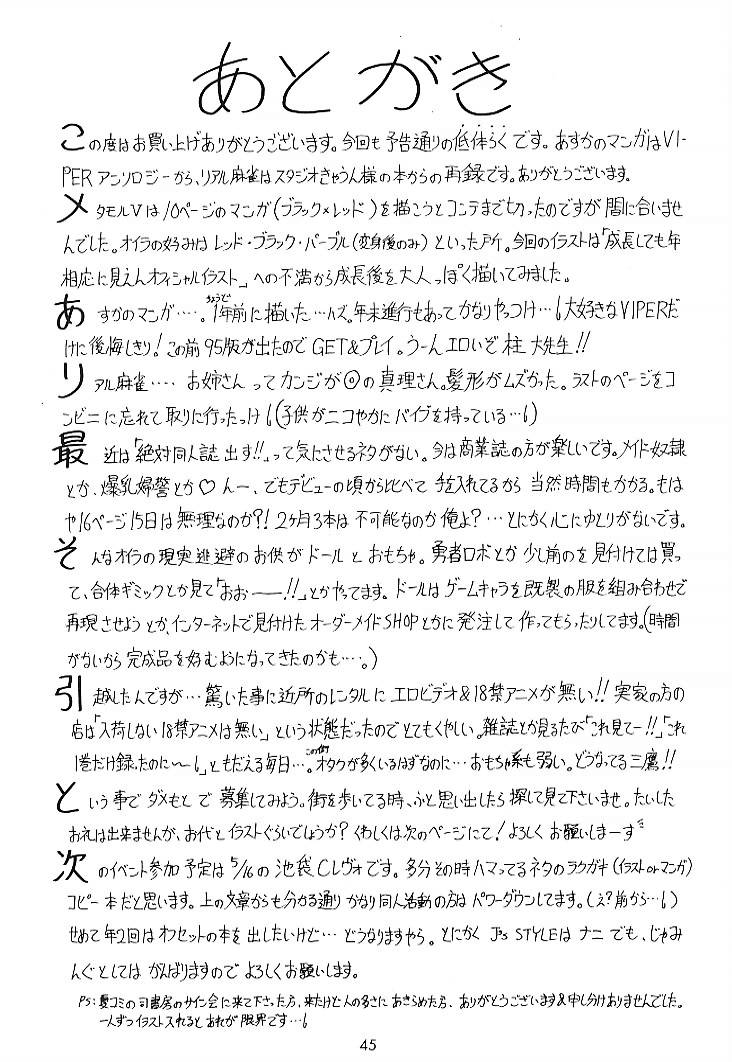 あとがき
この度はお買い上げありがとうございます。今回も予告通りの低体らくです。あすかのマンガはVI-
PERアンソロジーから、リアル麻雀はスタジオきゃうん様の本からの再録です。ありがとうございます。
メタモルVは10ページのマンガ(ブラック×レッド)を描こうとコンテまで切ったのですが間に合いませ
んでした。オイラの好みはレッド・ブラック・パープル(変身後のみ)といった所。今回のイラストは「成長しても年
相応に見えんオフィシャルイラスト」への不満から成長後を大人っぽく描いてみました。
あすかのマンガ‥‥。ちょうど1年前に描いた…ハズ。年末進行もあってかなりやっつけ…6大好きなVIPERだ
けに後悔しきり!この前95版が出たのでGET&プレイ。うーんエロいぞ柱大先生!!
リアル麻雀‥‥お姉さんってカンジが◎の真理さん。髪形がムズかった。ラストのページをコ
ンビニに忘れて取りに行ったっけ6(子供がニコやかにバイブを持っている…6)
最近は「絶対同人誌出す!!」って気にさせるネタがない。今は商業誌の方が楽しいです。メイド奴隷
とか、爆乳婦警とか♡んー、でもデビューの頃から比べて手を入れてるから当然時間もかかる。もは
や16ページ15日は無理なのか?!2ヶ月3本は不可能なのか俺よ?…とにかく心にゆとりがないです。
そんなオイラの現実逃避のお供がドールとおもちゃ。勇者ロボとか少し前のを見付けては買っ
て、合体ギミックとか見て「おおー!!」とかやってます。ドールはゲームキャラを既製の服を組み合わせで
再現させようとか、インターネットで見付けたオーダーメイドSHOPとかに発注して作ってもらったりしてます。(時間
がないから完成品を好むようになってきたのかも…。)
引越したんですが…驚いた事に近所のレンタルにエロビデオ&18禁アニメが無い!!実家の方の
店は「入荷しない18禁アニメは無い」という状態だったのでとてもくやしい。雑誌とか見るたび「これ見てー!!」「これ
1巻だけ録ったのに〜6」ともだえる毎日…。この街オタクが多くいるはずなのに…おもちゃ系も弱い。どうなってる三鷹!!
という事でダメもとで募集してみよう。街を歩いてる時、ふと思い出したら探して見て下さいませ。たいした
お礼は出来ませんが、お代とイラストぐらいでしょうか?くわしくは次のページにて!よろしくお願いしまーす
次のイベント参加予定は5/16の池袋Cレヴォです。多分その時ハマってるネタのラクガキ(イラストorマンガ)
コピー本だと思います。上の文章からも分かる通りかなり同人活動の方はパワーダウンしてます。(え?前から…6)
せめて年2回はオフセットの本を出したいけど…どうなりますやら。とにかくJ's STYLEはナニでも、じゃみ
んぐとしてはがんばりますのでよろしくお願いします。
PS:夏コミの司書房のサイン会に来て下さった方、来たけど人の多さにあきらめた方、ありがとうございます&申し分けありませんでした。
一人ずつイラスト入れるとあれが限界です…6
45